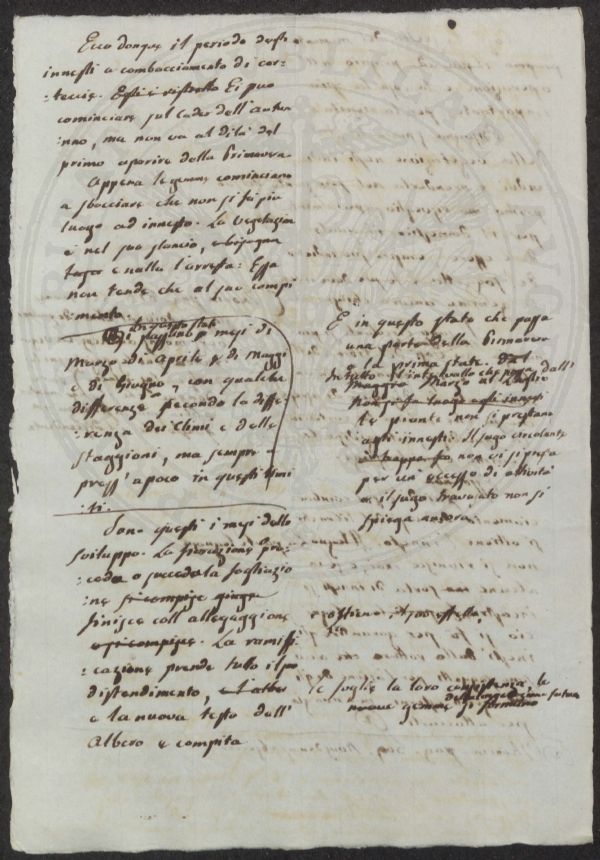 Ecco donque il periodo degli
innesti a combacciamento di cor-
teccie. Egli è ristretto Ei può
cominciare sul cader dell'autun
:nno, ma non va al di là del
primo aparire della Primavera
Appena le gemme cominciano
a sbocciare che non si fa più
luogo ad innesto. La vegetazion
è nel suo slancio,
e nulla l'arresta: Essa
non tende che al suo compi
:mento.
In questo stato
si passano i mesi di
Marzo di Aprile & di Maggi
e di Giugno, con qualche
differenza secondo la diffe-
:renza dei Climi e delle
staggioni, ma sempre
press' a poco in questi limi
:ti.
Sono questi i mesi dello
sviluppo. La fioritura pre-
:cede o succede la fogliazio
:ne si compisce
finisce coll'allegaggione
e si compisce. La ramifi-
:cazione prende tutto il suo
distendimento,
e la nuova testa dell'
Albero è compita
È in questo stato che passa
una parte della Primavera
e la prima state. Dal
In tutto l'intervallo che passa dall'
Maggio Marzo al Luglio
non si fa luogo agli innesti
le piante non si prestano
agli innesti. Il sugo circolante
non vi si presta
per un eccesso di attività
e il sugo travasato non si
spiega ancora
ottiene il suo effetto,
le foglie la loro consistenza, le
della vegetazione futura
nuove gemme si formano